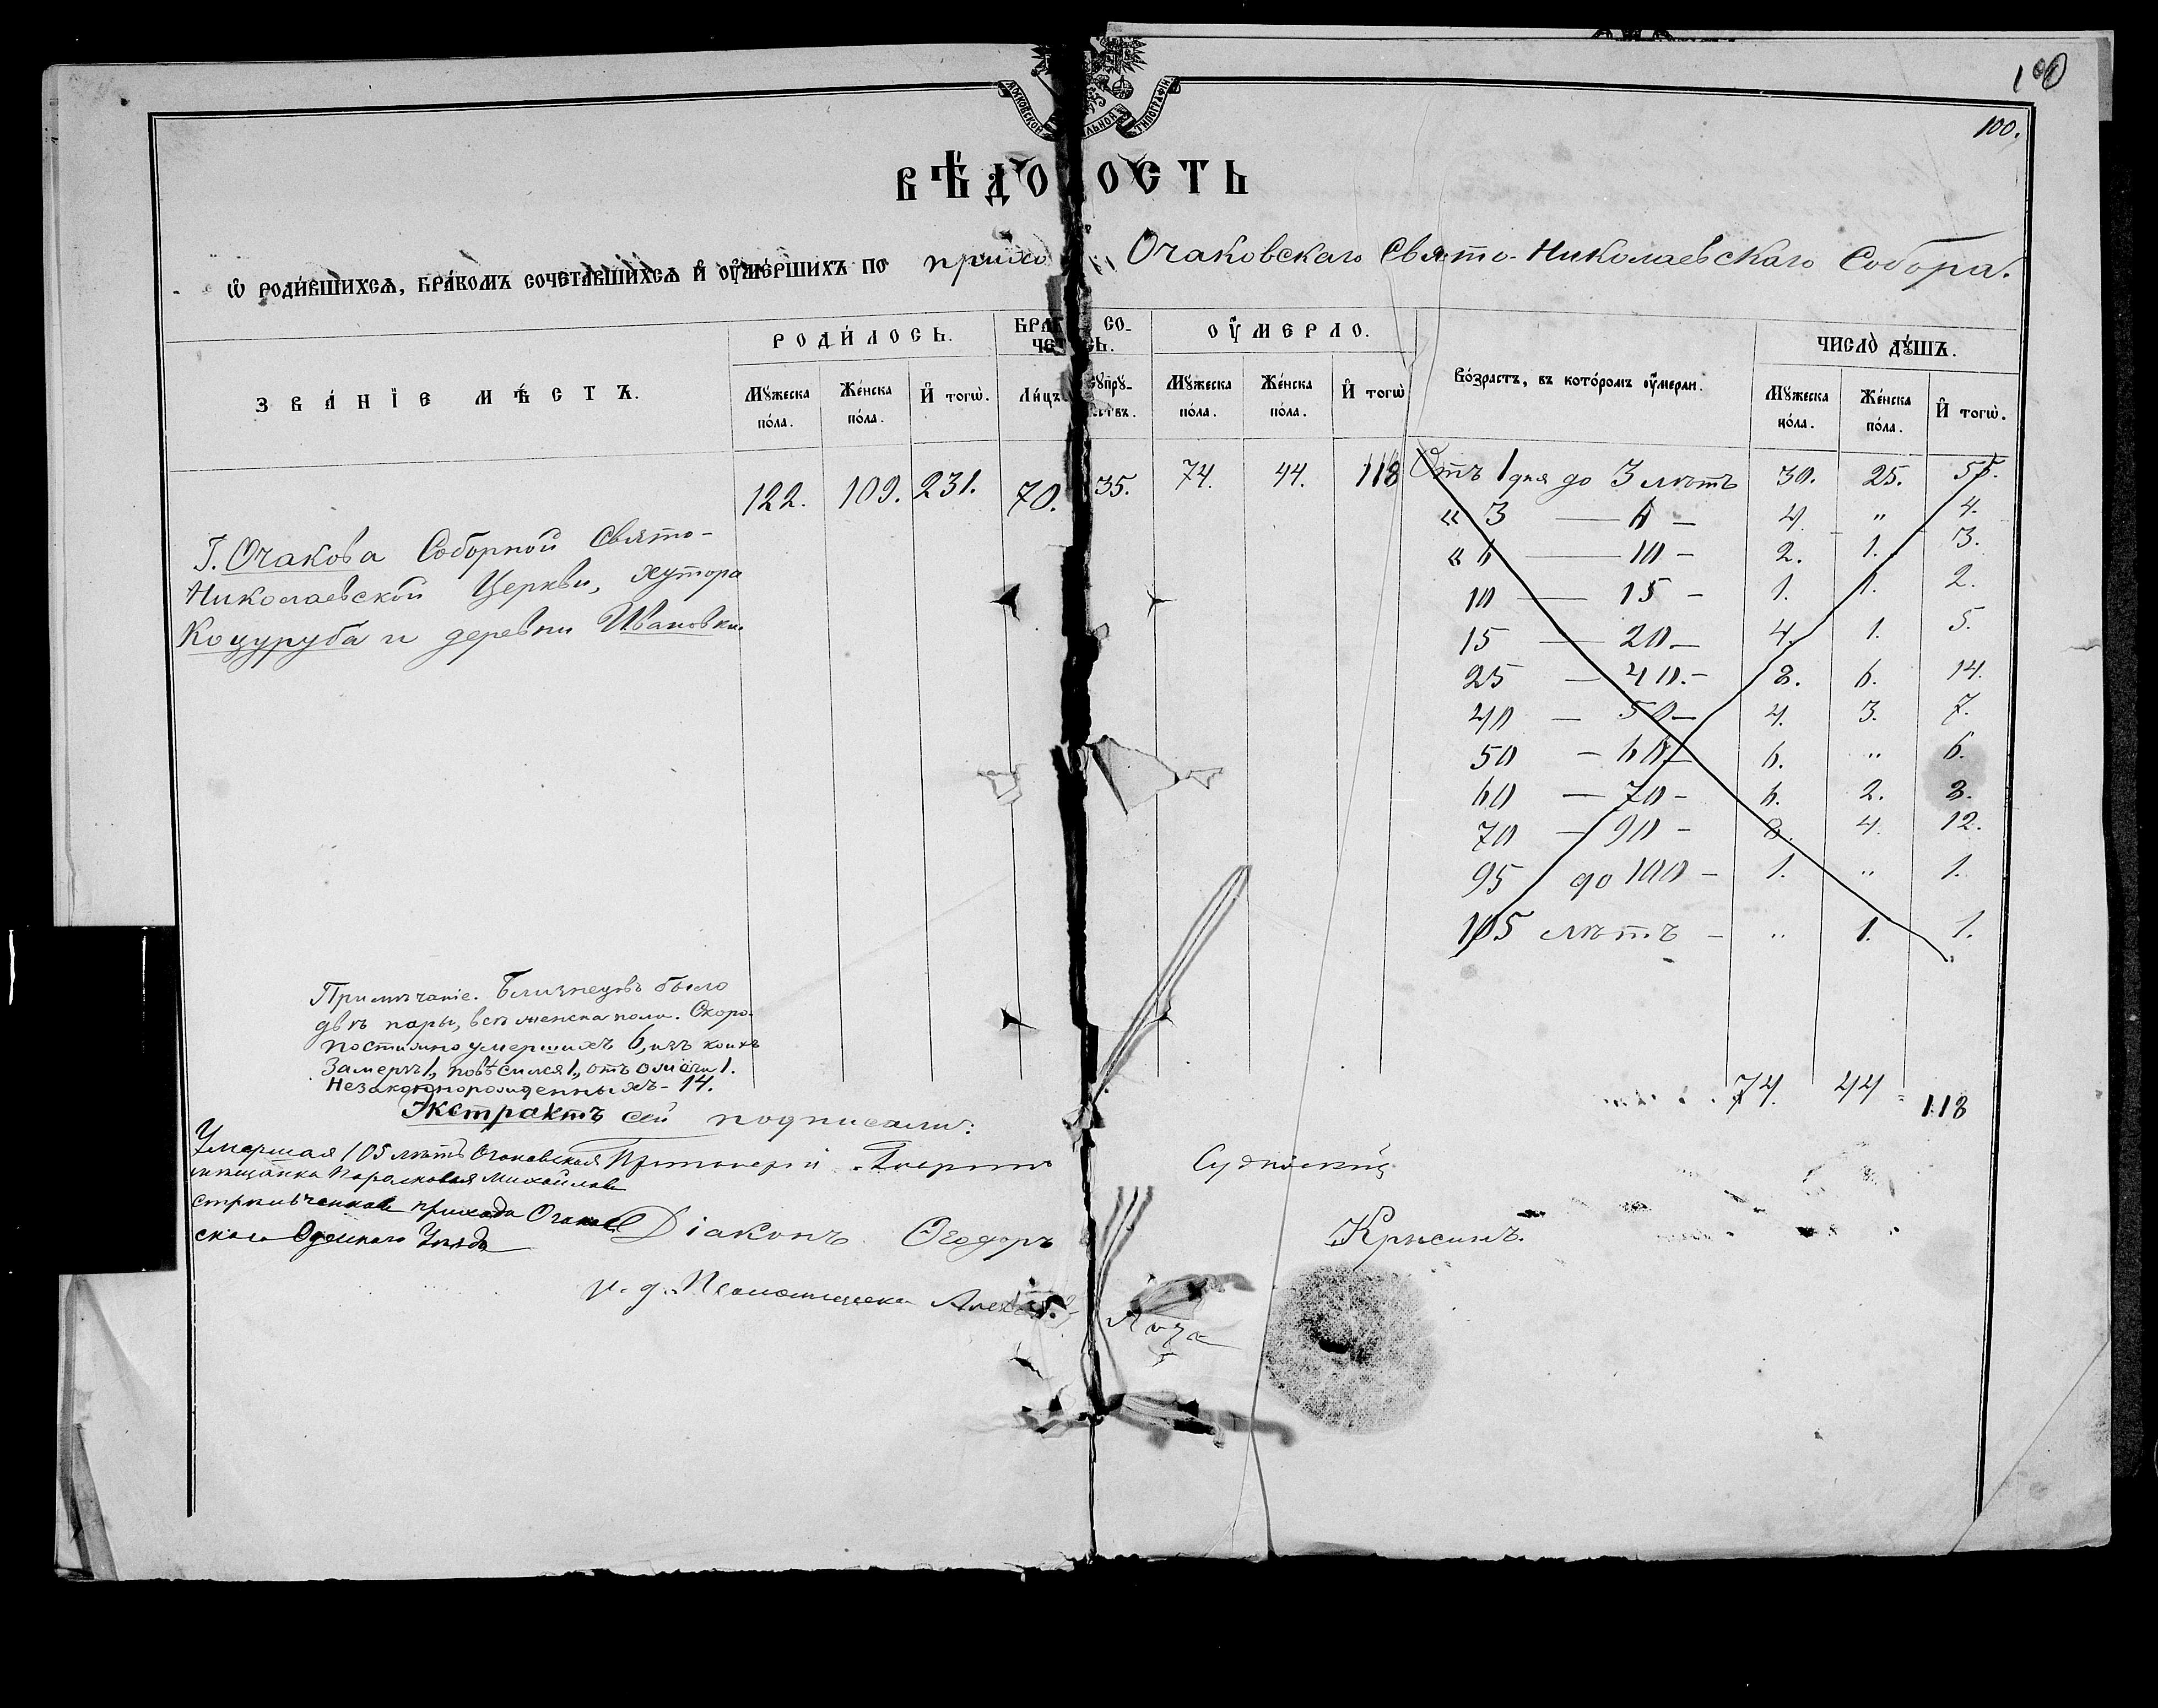 100
100.
ВѢДОМОСТЬ
Ѡ РОДИ́ВШИХСѦ, БРА́КОМЪ СОЧЕТА́ВШИХСѦ И҆ ОУ҆МЕ́РШИХЪ ПО приходу Очаковскаго Свято-Николаевскаго Собора.
ЗВА́НЇЕ МѢ́СТЪ.
РОДИ́ЛОСЬ.
Мꙋжеска по́ла.
Же́нска по́ла.
И҆ тогѡ̀.
БРАК СО-ЧЕ СЬ.
Ли́цъ
сꙋпрꙋ-
ствъ.
ОУ҆МЕРЛО.
Мꙋжеска по́ла.
Же́нска по́ла.
И҆ тогѡ̀
Во́зрастъ, въ кото́ромъ оу҆́мерли.
ЧИСЛО̀ ДꙊШЪ.
Мꙋжеска по́ла.
Же́нска по́ла.
И҆ тогѡ̀.
122. 109. 231. 70. 35. 74. 44. 118
Г. Очакова Соборной Свято-
Николаевской Церкви, хутора
Коцуруба и деревни Ивановки.
Отъ 1 дня до 3 лѣтъ 30. 25. 55.
« 3 — 6 — 4. " 4.
« 6 — 10 — 2. 1. 3.
10 — 15 — 1. 1. 2.
15 — 20 — 4. 1. 5.
25 — 40. — 8. 6. 14.
40 — 50 — 4. 3. 7.
50 — 60 — 6. " 6.
60 — 70 — 6. 2. 8.
70 — 90 — 8. 4. 12.
95 до 100 — 1. " 1.
105 лѣтъ — " 1. 1.
74. 44 = 118
Примѣчаніе. Близнецовъ было
двѣ пары, всѣ женска пола. Скоро-
постижно умершихъ 6, изъ коихъ
Замерзъ 1, повѣсился 1, отъ 1.
Незаконнорожденныхъ - 14.
Экстрактъ сей подписали:
Умершая 105 лѣтъ Очаковская
мѣщанка Михайлова
прихода Очаков
скаго Одесскаго Уѣзда
Протоіерей Судковскій
Діаконъ Ѳеодоръ Крысинъ.
и. д. Псаломщика